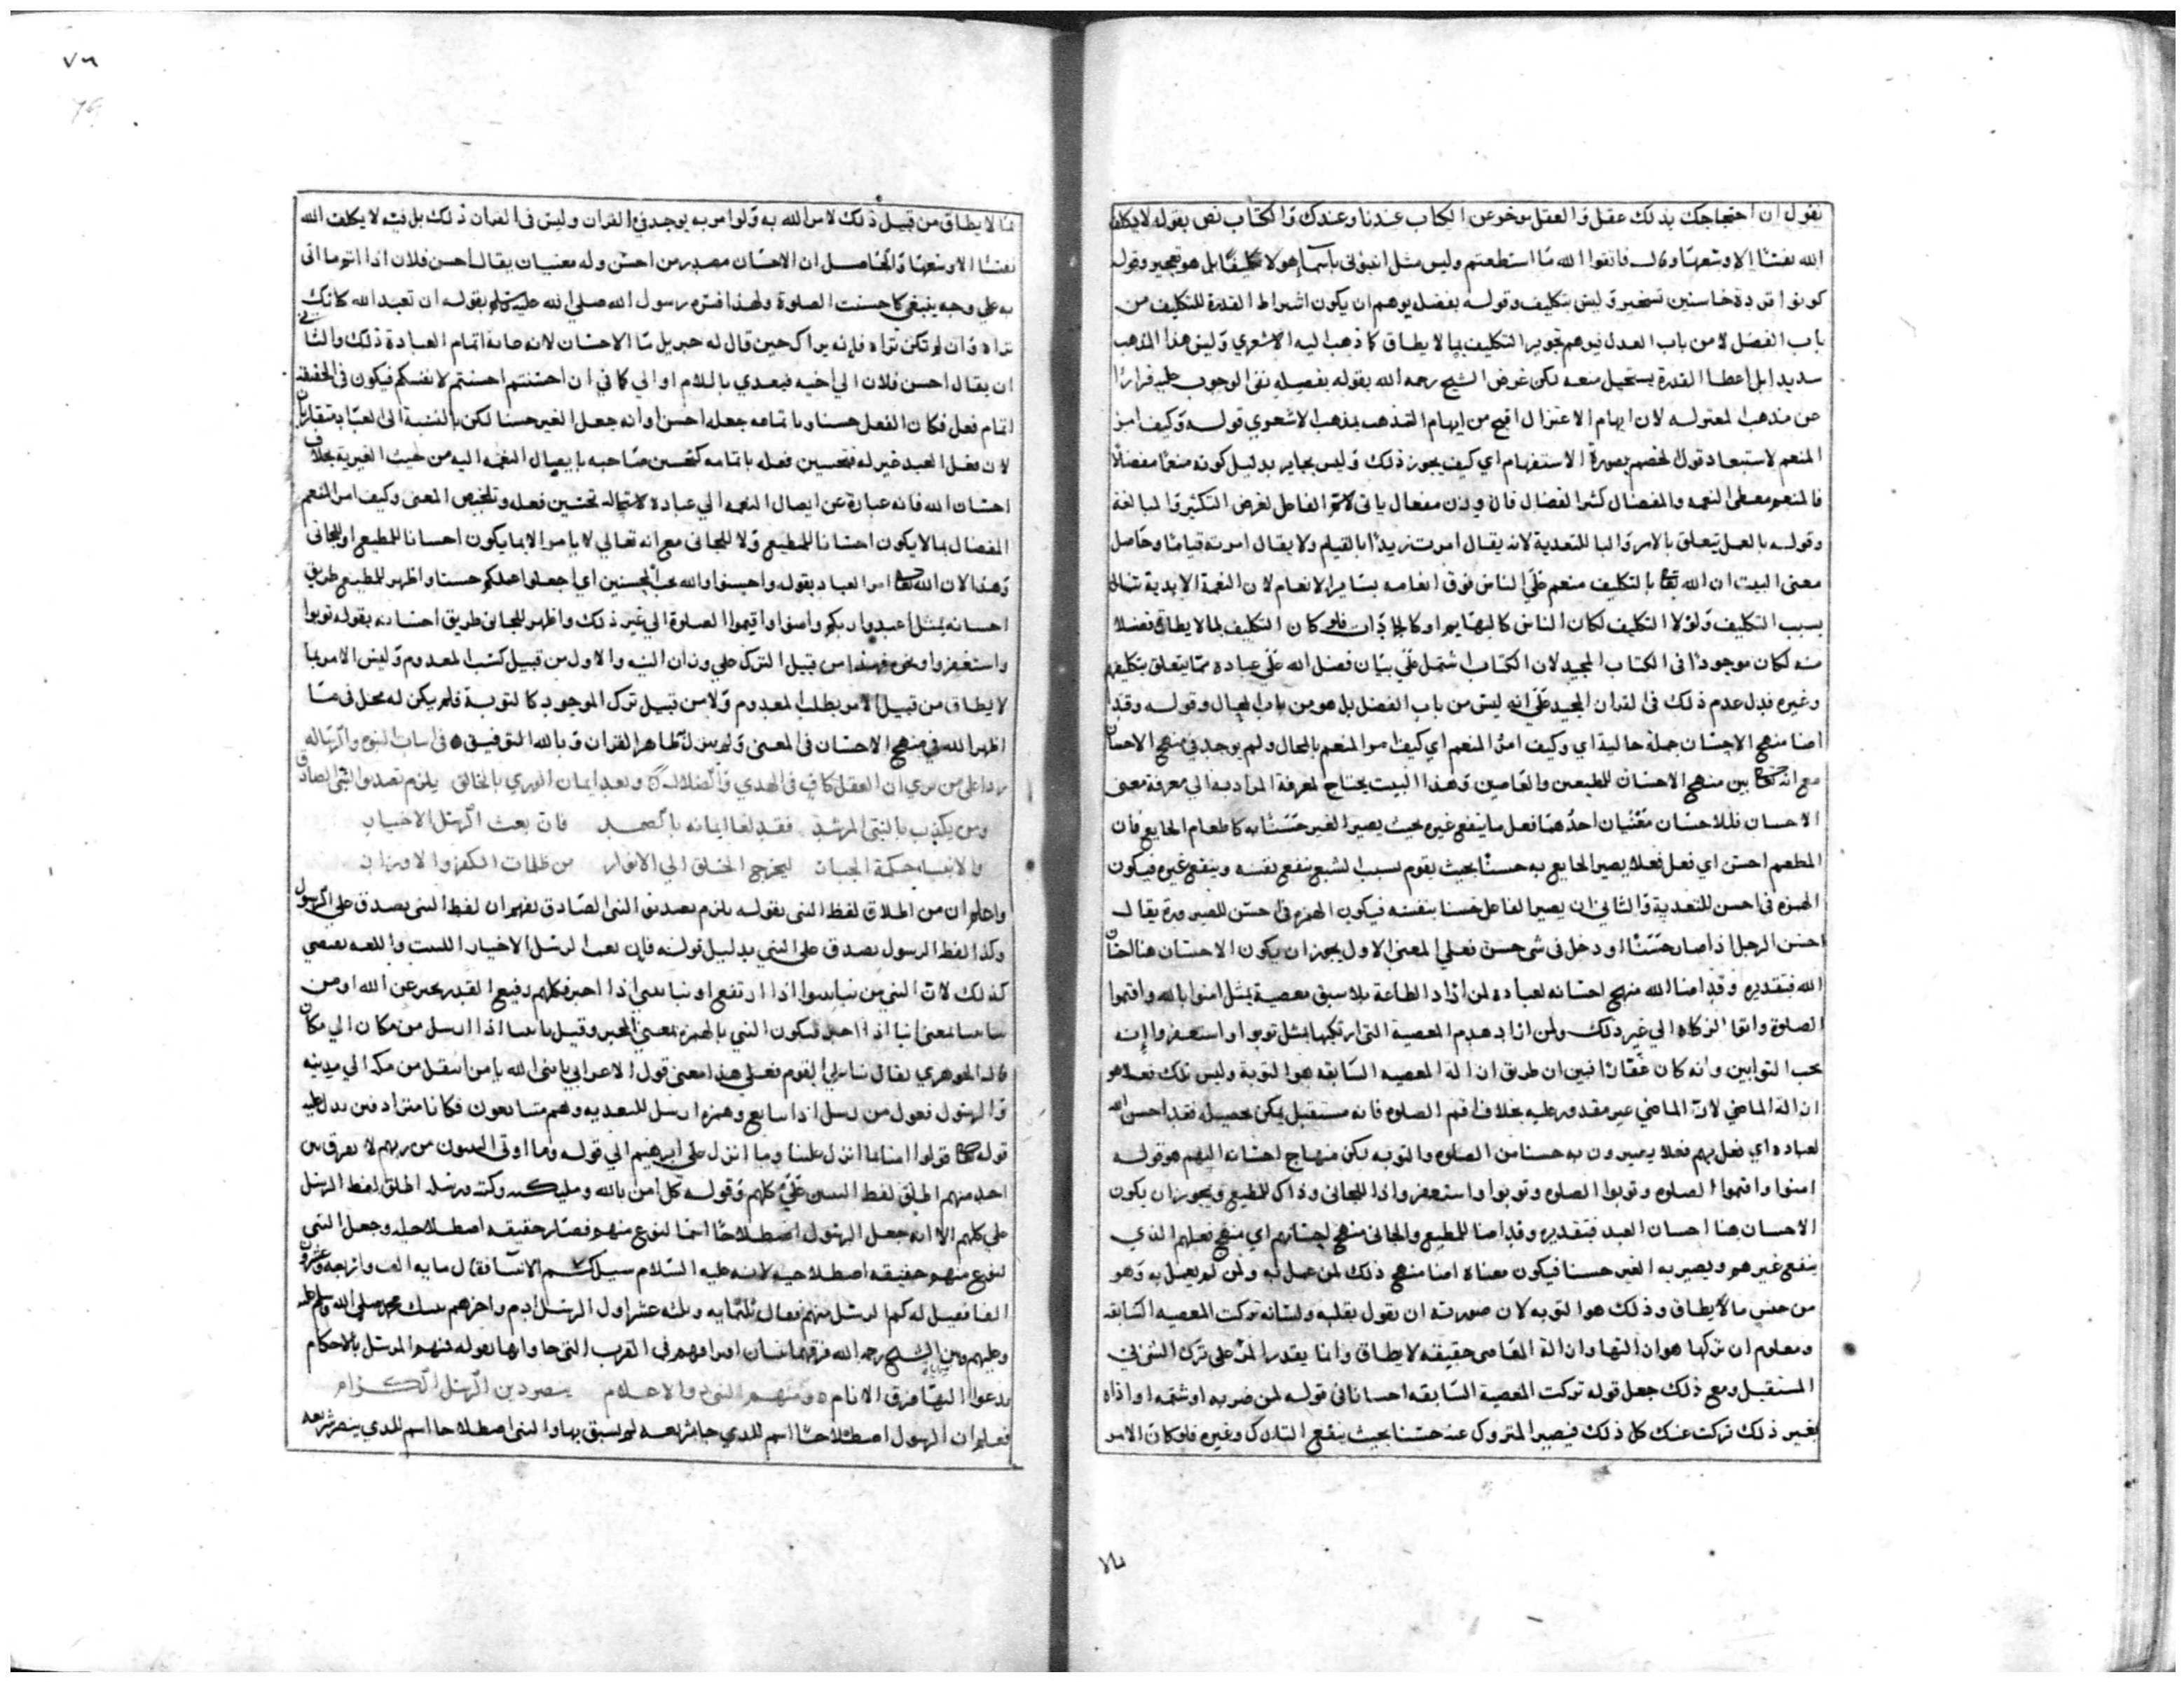 نقول ان احتجاجك بذلك عقل والعقل موخر عن الكتاب عندنا وعندك والكتاب نص بقوله لا يكلف
الله نفسًا الا وسعها وقال فاتقوا الله ما استطعتم وليس مثل انبؤني باسما هولا تكليفًا بل هو تعجيز وقوله
كونوا قردة خاسئين تسخير وليس بتكليف وقوله بفضل يوهم ان يكون اشراط القدرة للتكليف من
باب الفضل لا من باب العدل فيوهم تجويز التكليف بما لا يطاق كما ذهب اليه الاشعري وليس هذا المذهب
سديدا بل اعطا القدرة يستحيل منعه لكن غرض الشيخ رحمه الله بقوله بفضيله نفى الوجوب عليه فرارًا
عن مذهب المعتزله لان ايهام الاعتزال اقبح من ايهام التمذهب بمذهب الاشعري قوله وكيف امر
المنعم لاستبعاد قول الخصم بصورة الاستفهام اي كيف يجوز ذلك وليس بجايز بدليل كونه منعمًا مفضالًا
فالمنعم معطى النعمه والمفضال كثير الفضال فان وزن مفعال ياتى لاسم الفاعل لغرض التكثير والمبالغة
وقوله بالعل يتعلق بالامر والبا للتعدية لانه يقال امرت زيدًا بالقيام ولا يقال امرته قيامًا وحاصل
معنى البيت ان الله تعا بالتكليف منعم على الناس فوق انعامه بساير الانعام لان النعمة الابدية تنال
بسبب التكليف ولولا التكليف لكان الناس كالبهايم او كالجمادات فلو كان التكليف بما لا يطاق فضلا
منه لكان موجودًا فى الكتاب المجيد لان الكتاب اشتمل على بيان فضل الله على عباده مما يتعلق بتكليفهم
وغيره فدل عدم ذلك فى القران المجيد على انه ليس من باب الفضل بل هو من باب المحال وقوله وقد
اضا منهج الاحسان جملة حالية اي وكيف امر المنعم اي كيف امر المنعم بالمحال ولم يوجد فى منهج الاحسان
مع انه تعا بين منهج الاحسان للمطيعين والعاصين وهذا البيت يحتاج لمعرفة المراد به الي معرفة معنى
الاحسان فللاحسان معنيان احدهما فعل ما ينفع غيره بحيث يصير الغير حسنًا به كاطعام الجايع فان
المطعم احسن اي فعل فعلا يصير الجايع به حسنًا بحيث يقوم بسبب الشبع بنفع نفسه وبنفع غيره فيكون
الهمزه فى احسن للتعدية والثانى ان يصير الفاعل حسنا بنفسه فيكون الهمزه فى احسن للصيرورة يقال
احسن الرجل اذا صار حسنًا او دخل فى شى حسن فعلي المعنى الاول يجوز ان يكون الاحسان هنا احسان
الله فتقديره وقد اضا الله منهج احسانه لعباده لمن اراد الطاعة بلا سبق معصية بمثل امنوا بالله واقيموا
الصلوة واتوا الزكاه الي غير ذلك ولمن اراد هدم المعصية التى ارتكبها بمثل توبوا واستغفروا انه
يحب التوابين وانه كان غفارًا فبين ان طريق ازالة المعصيه السابقه هو التوبة وليس ذلك فعلا هو
ازالة الماضي لان الماضى غير مقدور عليه بخلاف اقم الصلوه فانه مستقبل يمكن تحصيله فقد احسن الله
لعباده اي فعل بهم فعلا يصيرون به حسنا من الصلوه والتوبه لكن منهاج احسانه اليهم هو قوله
امنوا واقيموا الصلوه وتوبوا الصلوه وتوبوا واستغفروا ذا للجانى وذاك للمطيع ويجوز ان يكون
الاحسان هنا احسان العبد فتقديره وقد اضا للمطيع والجانى منهج احسانهم اي منهج فعلهم الذي
ينفع غيرهم ويصير به الغير حسنا فيكون معناه اضا منهج ذلك لمن عمل به ولمن لم يعمل به وهو
من جنس ما لا يطاق وذلك هو التوبه لان صورته ان يقول بقلبه ولسانه تركت المعصيه السابقه
ومعلوم ان تركها هو ازالتها وازالة المعاصى حقيقه لا يطاق وانما يقدر المرء على ترك الشى فى
المستقبل ومع ذلك جعل قوله تركت المعصية السابقه احسانا فى قوله لمن ضربه او شتمه او اذاه
بغير ذلك تركت عنك كل ذلك فيصير المتروك عنه حسنا بحيث ينفع التارك وغيره فلو كان الامر
بما لا يطاق من قبيل ذلك لامر الله به ولو امر به يوجد فى القران وليس فى القران ذلك بل فيه لا يكلف الله
نفسًا الا وسعها والحاصل ان الاحسان مصدر من احسن وله معنيان يقال احسن فلان اذا اتم ما اتى
به علي وجه ينبغي كاحسنت الصلوة ولهذا فسره رسول الله صلي الله عليه وسلم بقوله ان تعبد الله كانك
تراه وان لم تكن تراه فانه يراك حين قال له جبريل ما الاحسان لانه صانه اتمام العبادة ذلك والثانى
ان يقال احسن فلان الي اخيه فيعدي باللام او الي كما في ان احسنتم احسنتم لانفسكم فيكون فى الحقيقه
اتمام فعل فكان الفعل حسنا وباتمامه جعله احسن او انه جعل الغير حسنا لكن بالنسبة الى العباد متقاربان
لان فعل العبد غير له فتحسين فعله باتمامه كتحسين صاحبه بايصال النعمه اليه من حيث الغيرية بخلاف
احسان الله فانه عبارة عن ايصال النعمه الي عباده لاستحالة تحسين فعله وتلخيص المعنى وكيف امر المنعم
المفضال بما لا يكون احسانا للمطيع ولا للجانى مع انه تعالي لا يامر الا بما يكون احسانا للمطيع او للجانى
وهذا لان الله تعا امر العباد بقوله واحسنوا والله يحب المحسنين اي اجعلوا عملكم حسنا واظهر للمطيع طريق
احسانه بمثل اعبدوا ربكم وامنوا واقيموا الصلوة الي غير ذلك واظهر للجانى طريق احسانه بقوله توبوا
واستغفروا ونحوه فهذا من قبيل الترك علي وزان النيه والاول من قبيل كسب المعدوم وليس الامر بما
لا يطاق من قبيل الامر بطلب المعدوم ولا من قبيل ترك الموجود كالتوبة فلم يكن له محل فى ما
اظهر الله فى منهج الاحسان فى المعنى ولم ينزل ظاهر القران وبالله التوفيق ه فى اثبات النبوه والرساله
ردا على من يري ان العقل كاف فى الهدي والضلاله وبعد ايمان الوري بالخالق يلزم تصديق النبى الصادق
ومن يكذب بالنبى المرشد فقد لغا ايمانه بالصمد فان بعث الرسل الاخيار
والانبيا حكمة الجبار ليخرج الخلق الي الانوار من ظلمات الكفر والاوزار
واعلم ان من اطلاق لفظ النبى بقوله يلزم تصديق النبى الصادق يفهم ان لفظ النبى يصدق على الرسول
وكذا لفظ الرسول يصدق على النبي بدليل قوله فان بعث الرسل الاخيار البيت واللغه يقتضي
كذلك لان النبى من نبا ينبوا اذا ارتفع او نبا ينبى اذا اخبر فكلهم رفيع القدر يخبر عن الله او من
بمعنى انبا اذا اخبر فيكون النبي بالهمزه بمعنى المخبر وقيل اذا ارسل من مكان الي مكان
قال الجوهري يقال القوم فعلي هذا معنى قول الاعرابي يا نبى الله يا من انتقل من مكه الي مدينه
والرسول فعول من رسل اذا تتابع وهمزه ارسل للتعديه وهم متتابعون فكانا مترادفين يدل عليه
قوله تعا قولوا امنا بما انزل علينا وما انزل على ابرهيم الي قوله وما اوتى النبيون من ربهم لا نفرق بين
احد منهم اطلق لفظ النبيين على كلهم وقوله كل امن بالله ومليكته وكتبه ورسله اطلق لفظ الرسل
على كلهم الا انه جعل الرسول اصطلاحًا اسمًا لنوع منهم فصار حقيقه اصطلاحيه وجعل النبى
لنوع منهم حقيقه اصطلاحيه لانه عليه السلام سيل كم الانبيا فقال مايه الف واربعه وعشرون
الفا فقيل له كم الرسل منهم فقال ثلثمايه وثلثه عشر اول الرسل ادم واخرهم نبيك محمد صلى الله عليه وسلم
وعليهم وبين الشيخ رحمه الله فرقهما ببيان اوصافهم فى القرب التى حاوها بقوله فمنهم المرسل بالاحكام
يدعوا اليها فرق الانام ه ومنهم النبى والاعلام ينصر دين الرسل الكرام
فعلم ان الرسول اصطلاحًا اسم للذي جا بشريعه لم يسبق بها والنبى اصطلاحا اسم للذي ينصر شريعه
٧٦
79